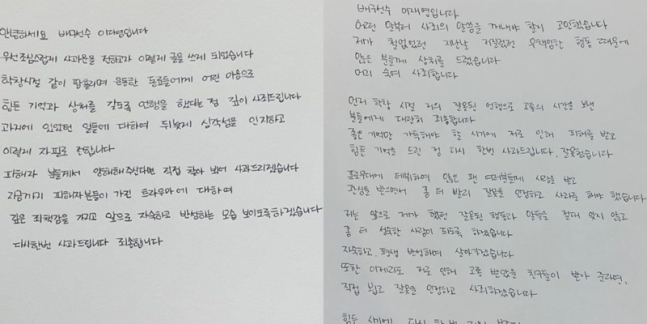 안녕하세요 배구선수 이다영입니다
우선 조심스럽게 사과문을 전하고자 이렇게 글을 쓰게 되었습니다
학창시절 같이 땀흘리며 운동한 동료들에게 어린 마음으로
힘든 기억과 상처를 갖도록 언행을 했다는 점 깊이 사죄드립니다
과거에 있었던 일들에 대하여 뒤늦게 심각성을 인지하고
이렇게 자필로 전합니다
피해자 분들께서 양해해주신다면 직접 찾아 뵈어 사과드리겠습니다
지금까지 피해자분들이 가진 트라우마에 대하여
깊은 죄책감을 가지고 앞으로 자숙하고 반성하는 모습 보이도록하겠습니다
다시한번 사과드립니다 죄송합니다
배구선수 이재영입니다
어떤 말부터 사죄의 말씀을 꺼내야 할지 고민했습니다
제가 철없었던 지난날 저질렀던 무책임한 행동 때문에
많은 분들께 상처를 드렸습니다
머리 숙여 사죄합니다
먼저 학창 시절 저의 잘못된 언행으로 고통의 시간을 보낸
분들에게 대단히 죄송합니다
좋은 기억만 가득해야 할 시기에 저로 인해 피해를 받고
힘든 기억을 드린 점 다시 한번 사과드립니다, 잘못했습니다
프로무대에 데뷔하여 많은 팬 여러분들께 사랑을 받고
관심을 받으면서 좀 더 빨리 잘못을 인정하고 사죄를 해야 했습니다
저는 앞으로 제가 했던 잘못된 행동과 말들을 절대 잊지 않고
좀 더 성숙한 사람이 되도록 하겠습니다
자숙하고, 평생 반성하며 살아가겠습니다
또한 이제라도 저로 인해 고통 받았을 친구들이 받아 준다면,
직접 뵙고 잘못을 인정하고 사죄하겠습니다
힘든 시기에 다시 한번